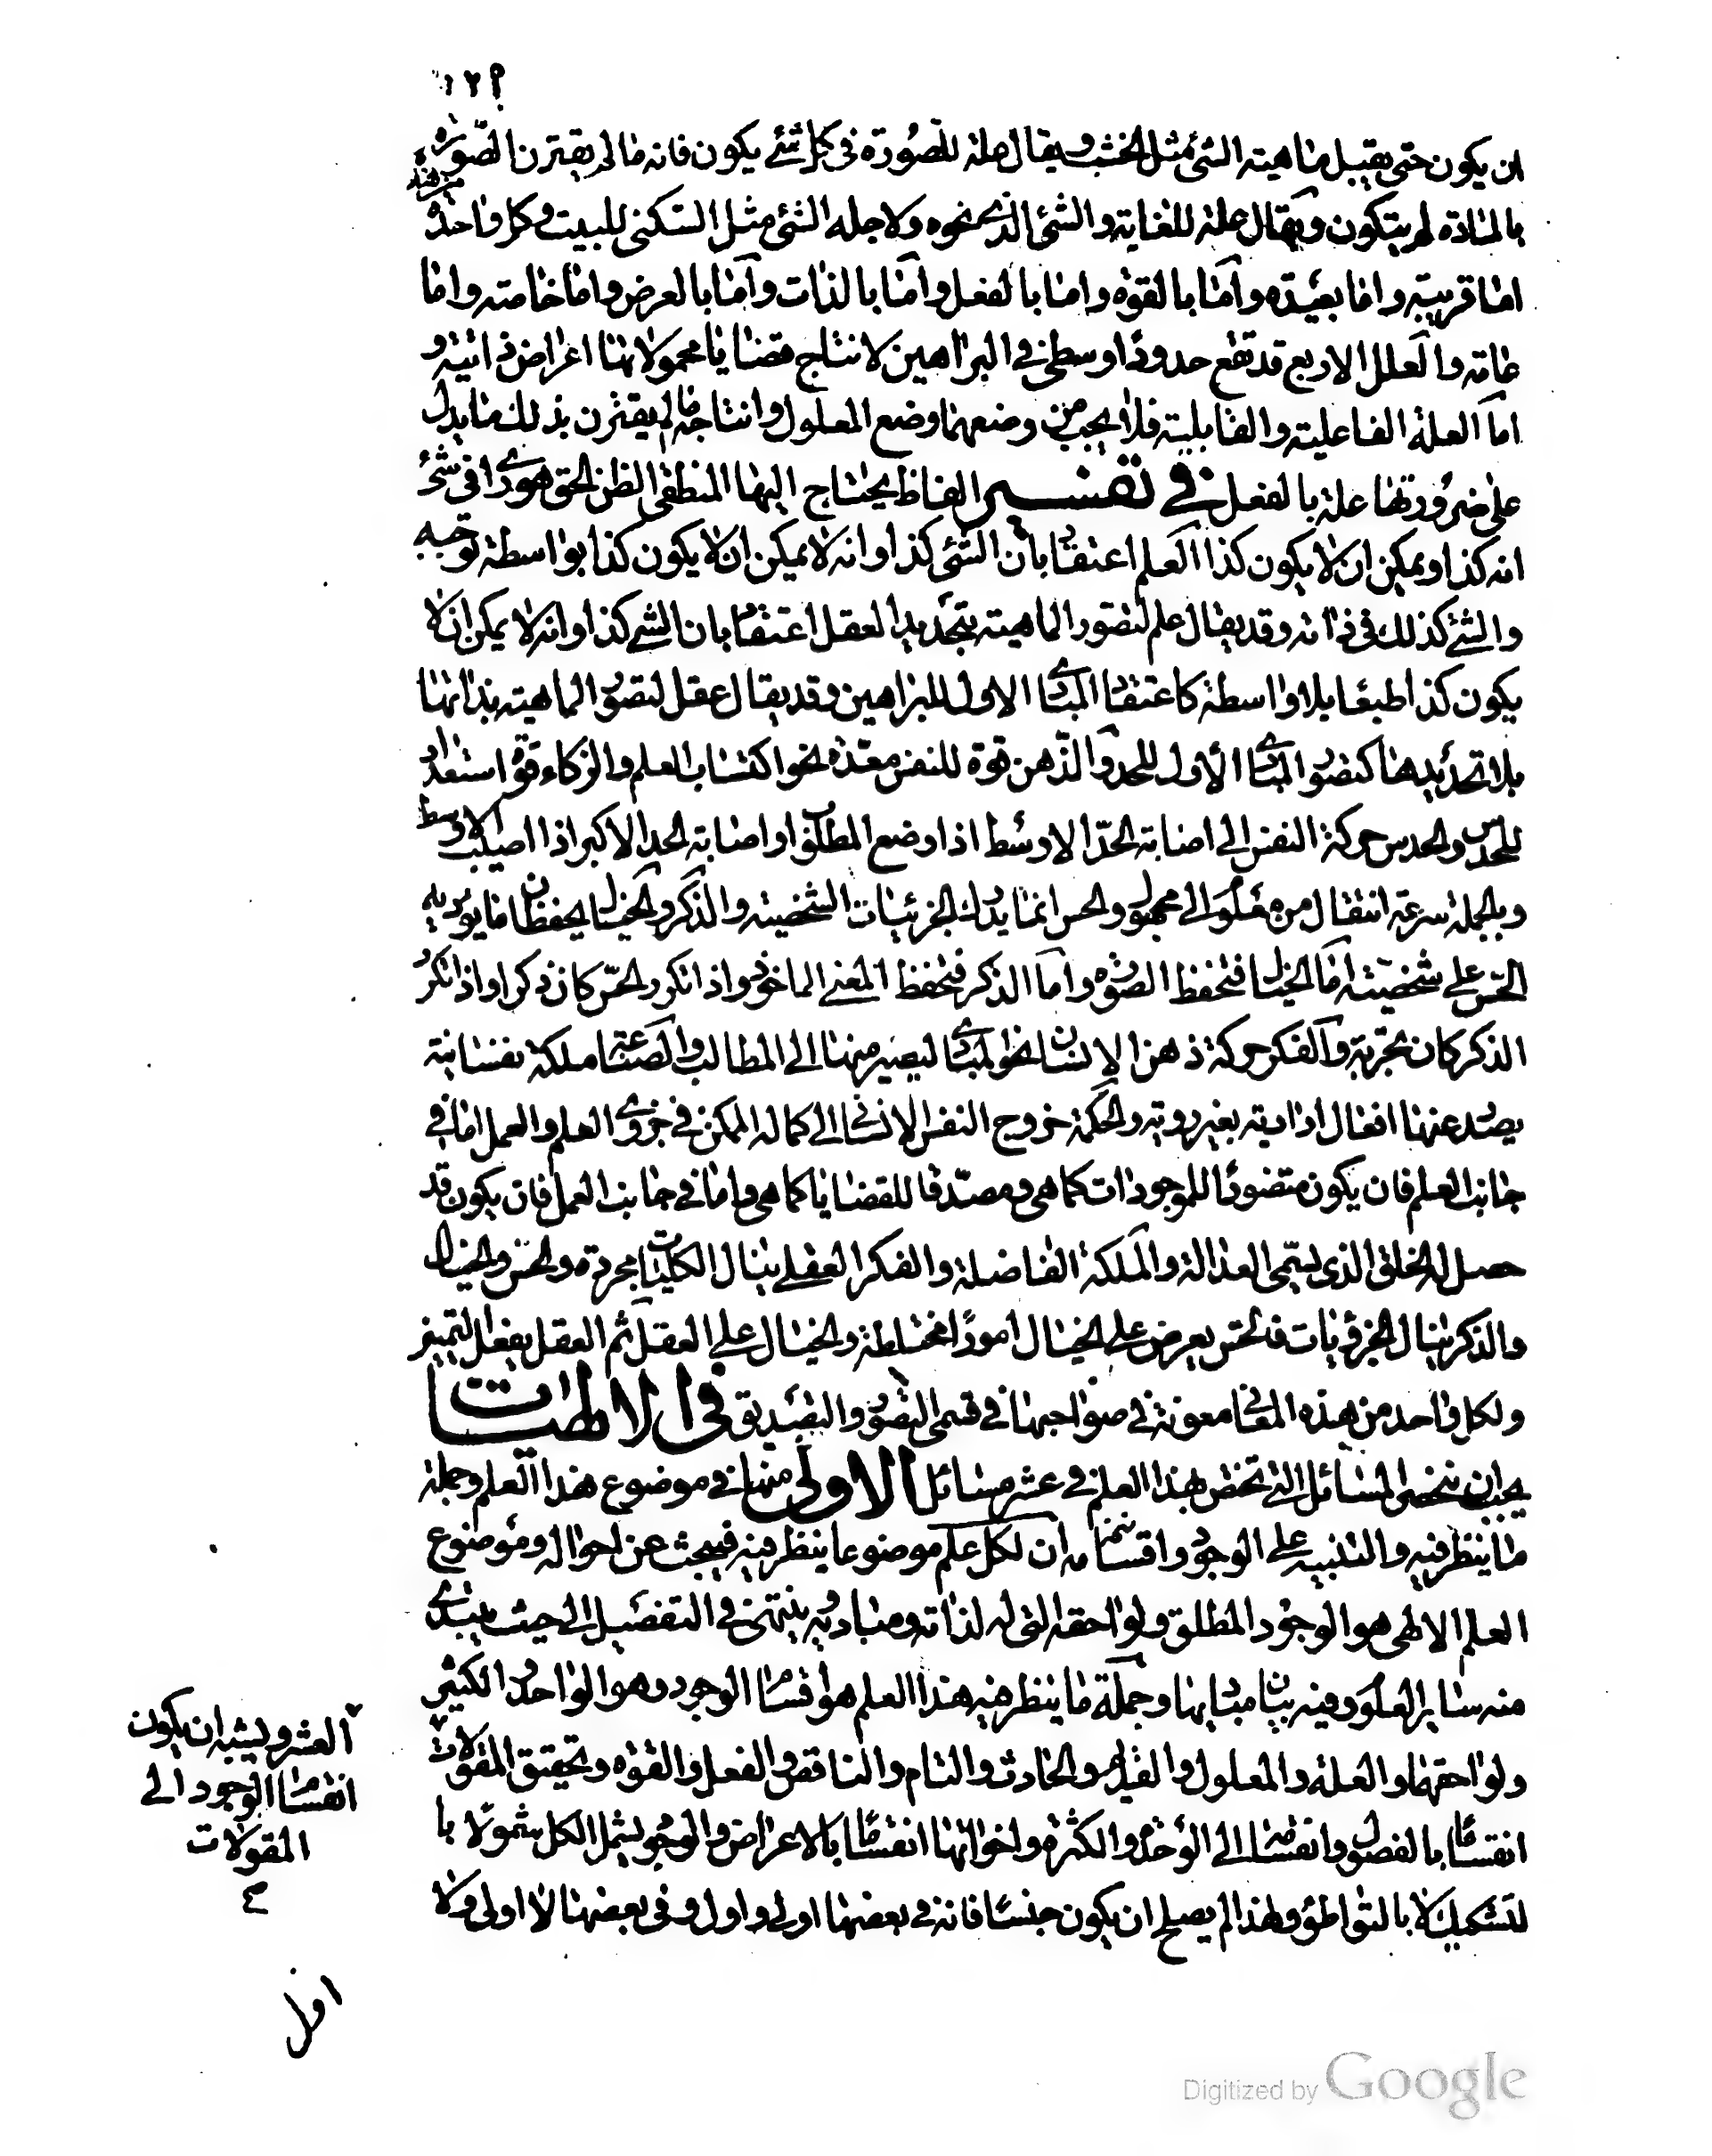 ١٢٩
ان يكون حتى يقبل ماهيته الشئ مثل الخشب ويقال علة للصورة فى كل شئ يكون فانه ما لم يقترن الصورة
بالمادة لم يتكون ويقال علة للغاية والشئ الذى نحوه ولاجله الشئ مثل السكنى للبيت وكل واحد من هذه
اما قريبة واما بعيدة واما بالقوة واما بالفعل واما بالذات واما بالعرض واما خاصة واما
عامة والعلل الاربع قد تقع حدودا وسطى فى البراهين لانتاج قضايا محمولاتها اعراض ذاتية و
اما العلة الفاعلية والقابلية فلا يجب من وضعهما وضع المعلول وانتاجه ما لم يقترن بذلك ما يدل
على ضرورتها علة بالفعل فى تفسير الفاظ يحتاج اليها المنطقى الظن الحق هو راى فى شئ
انه كذا ويمكن ان لا يكون كذا العلم اعتقاد بان الشئ كذا وانه لا يمكن ان لا يكون كذا بواسطة توجبه
والشئ كذلك فى ذاته وقد يقال علم لتصور الماهية بتحديد العقل اعتقاد بان الشئ كذا وانه لا يمكن ان لا
يكون كذا طبعا بلا واسطة كاعتقاد المبادى الاول للبراهين وقد يقال عقل لتصور الماهية بذاتها
بلا تحديدها كتصور المبادى الاول للحد والذهن قوة للنفس معدة نحو اكتساب العلم والزكاء قوة استعداد
للحدس والحدس حركة النفس الى اصابة الحد الاوسط اذا وضع المطلوب او اصابة الحد الاكبر اذا اصيب الاوسط
وبالجملة سرعة انتقال من معلوم الى مجهول والحس انما يدرك الجزئيات الشخصية والذكر والخيال يحفظان ما يوديه
الحس على شخصيته اما الخيال فتحفظ الصورة واما الذكر فتحفظ المعنى الماخوذ واذا تكرر الحس كان ذكرا واذا تكرر
الذكر كان تجربة والفكر حركة ذهن الانسان نحو المبادى ليصير منها الى المطالب والصناعة ملكة نفسانية
يصدر عنها افعال ارادية بغير روية والحكمة خروج النفس الانسانى الى كماله الممكن فى جزوى العلم والعمل اما فى
جانب العلم فان يكون متصورا للموجودات كما هى ومصدقا للقضايا كما هى واما فى جانب العمل فان يكون قد
حصل له الخلق الذى يسمى العدالة والملكة الفاضلة والفكر العقلى ينال الكليات مجردة والحس والخيال
والذكر ينال الجزويات فالحس يعرض على الخيال امورا مختلطة والخيال على العقل ثم العقل يفعل التمييز
ولكل واحد من هذه المعانى معونة فى صواحبها فى قسمى التصور والتصديق فى الالهيات
يجب ان نحصى المسائل التى تختص بهذا العلم فى عشر مسائل الاولى منها فى موضوع هذا العلم وجملة
ما ينظر فيه والتنبيه على الوجود واقسامه ان لكل علم موضوعا ينظر فيه فيبحث عن احواله وموضوع
العلم الالهى هو الوجود المطلق ولواحقه التى له لذاته ومباديه وينتهى فى التفصيل الى حيث يبتدى
منه ساير العلوم وفيه بيان مباديها وجملة ما ينظر فيه هذا العلم هو اقسام الوجود وهو الواحد والكثير
ولواحقهما والعلة والمعلول والقديم والحادث والتام والناقص والفعل والقوة وتحقيق المقولات
انقساما بالفصول وانقسامه الى الوحدة والكثرة واخواتها انقساما بالاعراض والوجود يشمل الكل شمولا با
لتشكيك لا بالتواطؤ ولهذا لم يصلح ان يكون جنسا فانه فى بعضها اولى واول وفى بعضها لا اولى ولا
العشر ويشبه ان يكون
انقسام الوجود الى
المقولات
اول
Digitized by Google